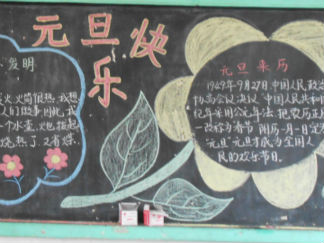 元旦快
乐
发明
火
火箭很热,我想
人们做事
一个水壶
烧热了,又省煤.
元旦来历
1949年9月27日,中国人民政治
协商会议决议 中国人民共和
纪年采用公元年法.把农历正月
一改称为春节 阳历一月一日定为
“元旦”元旦才成为全国人
民的欢乐节日.